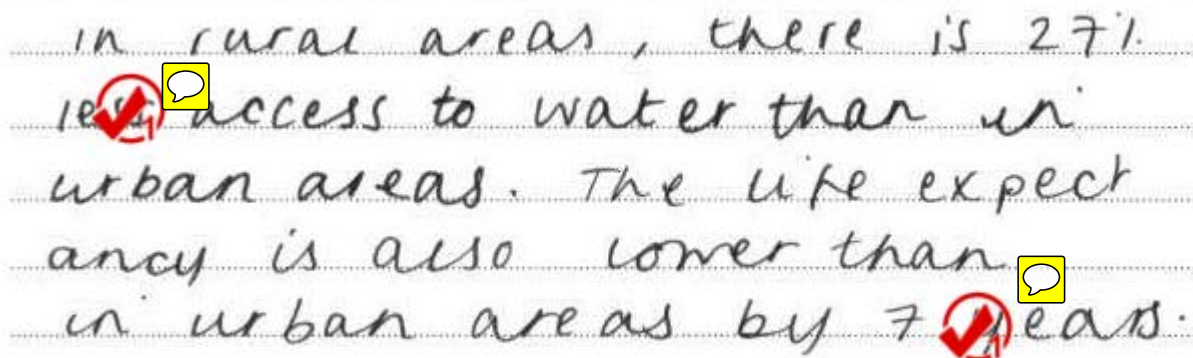 in rural areas, there is 27%
less access to water than in
urban areas. The life expect
ancy is also lower than
in urban areas by 7 years.